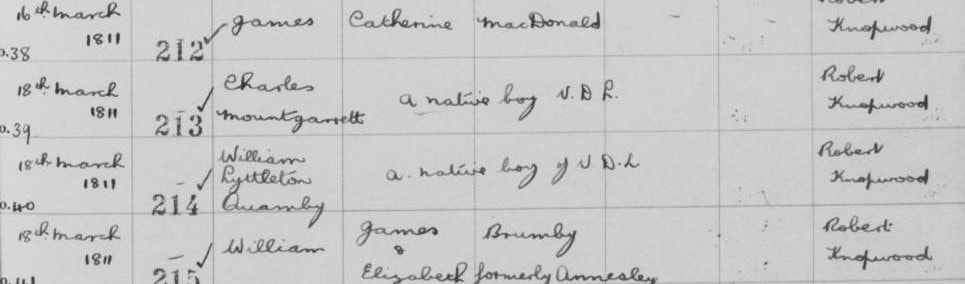 16th March James Catherine MacDonald Robert
1811 212 Knopwood
0.38
18th March Charles a native boy V.D L. Robert
1811 213 Mountgarrett Knopwood
0.39
18th March William a native boy of V D.L Robert
1811 Lyttleton Knopwood
0.40 214 Quamby
18th March William James Brumby Robert
1811 & Knopwood
215 Elizabeth formerly Annesley